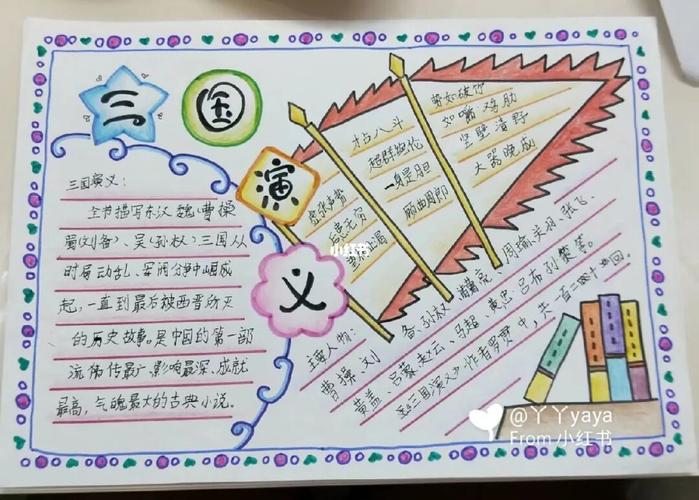 三国演义
三国演义：
全书描写东汉魏曹操
蜀(刘备)、吴(孙权)三国从
时局动乱、军阀分争中崛
起，一直到最后被西晋所灭
的历史故事。是中国的第一部
流传最广、影响最深、成就
最高，气魄最大的古典小说。
虚张声势
才占八斗
超群绝伦
一身是胆
顾曲周郎
势如破竹
如嚼鸡肋
坚壁清野
大器晚成
主要人物：
曹操、刘备、孙权、诸葛亮、周瑜、关羽、张飞、
黄盖、吕蒙、赵云、马超、黄忠、吕布、孙策等。
《三国演义》作者罗贯中，共一百二十回。
小红书
@丫丫yaya
From 小红书